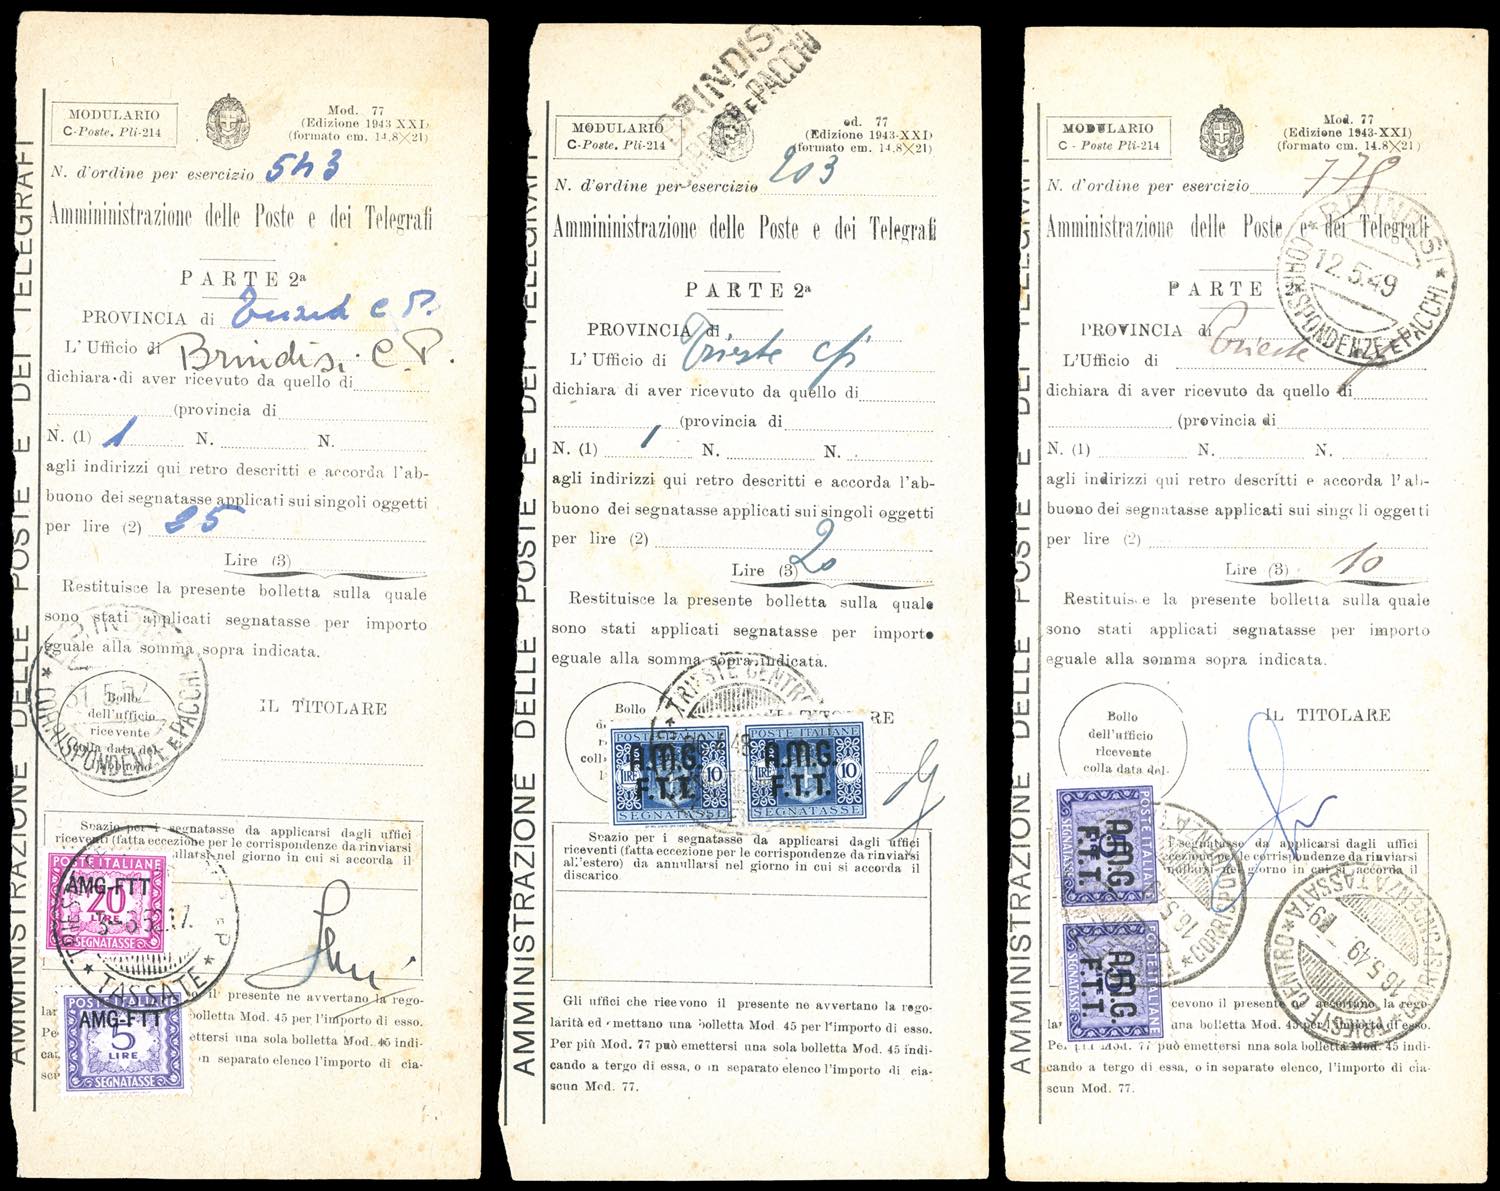 AMMINISTRAZIONE DELLE POSTE E DEI TELEGRAFI
MODULARIO
C-Poste. Pli-214
Mod. 77
(Edizione 1943 XXI)
(formato cm. 14.8X21)
N. d'ordine per esercizio 543
Ammininistrazione delle Poste e dei Telegrafi
PARTE 2ª
PROVINCIA di C. P.
L'Ufficio di Brindisi C. P.
dichiara di aver ricevuto da quello di
(provincia di
N. (1) 1 N. N.
agli indirizzi qui retro descritti e accorda l'ab-
buono dei segnatasse applicati sui singoli oggetti
per lire (2) 25
Lire (3)
Restituisce la presente bolletta sulla quale
sono stati applicati segnatasse per importo
eguale alla somma sopra indicata.
BRINDISI
CORRISPONDENZE E PACCHI
Bollo
dell'ufficio
ricevente
colla data del-
IL TITOLARE
Spazio per i segnatasse da applicarsi dagli uffici
riceventi (fatta eccezione per le corrispondenze da rinviarsi
ullarsi nel giorno in cui si accorda il
POSTE ITALIANE
AMG-FTT
20
LIRE
SEGNATASSE
TASSATE
il presente ne avvertano la rego-
bolletta Mod. 45 per l'importo di esso.
ettersi una sola bolletta Mod. 45 indi-
in separato elenco l'importo di cia-
POSTE ITALIANE
AMG-FTT
5
LIRE
SEGNATASSE
AMMINISTRAZIONE DELLE POSTE E DEI TELEGRAFI
BRINDISI
CORRISP. E PACCHI
MODULARIO
C-Poste. Pli-214
od. 77
(Edizione 1943-XXI)
(formato cm. 14.8X21)
N. d'ordine per esercizio 203
Ammininistrazione delle Poste e dei Telegrafi
PARTE 2ª
PROVINCIA di
L'Ufficio di Trieste
dichiara di aver ricevuto da quello di
(provincia di
N. (1) 1 N. N.
agli indirizzi qui retro descritti e accorda l'ab-
buono dei segnatasse applicati sui singoli oggetti
per lire (2)
Lire (3) 20
Restituisce la presente bolletta sulla quale
sono stati applicati segnatasse per importo
eguale alla somma sopra indicata.
Bollo
TRIESTE CENTRO
POSTE ITALIANE
A.M.G.
F.T.T.
LIRE 10
SEGNATASSE
POSTE ITALIANE
A.M.G.
F.T.T.
LIRE 10
SEGNATASSE
Spazio per i segnatasse da applicarsi dagli uffici
riceventi (fatta eccezione per le corrispondenze da rinviarsi
al.'estero) da annullarsi nel giorno in cui si accorda il
discarico
Gli uffici che ricevono il presente ne avvertano la rego-
larità ed emettano una bolletta Mod. 45 per l'importo di esso.
Per più Mod. 77 può emettersi una sola bolletta Mod. 45 indi-
cando a tergo di essa, o in separato elenco l'importo di cia-
scun Mod. 77.
AMMINISTRAZIONE DELLE POSTE E DEI TELEGRAFI
MODULARIO
C - Poste Pli-214
Mod. 77
(Edizione 1943-XXI)
(formato cm. 14.8X21)
N. d'ordine per esercizio 779
Ammininistrazione delle Poste e dei Telegrafi
BRINDISI
12.5.49
CORRISPONDENZE E PACCHI
PARTE 2ª
PROVINCIA di Trieste
L'Ufficio di
dichiara di aver ricevuto da quello di
(provincia di
N. (1) N. N.
agli indirizzi qui retro descritti e accorda l'ab-
buono dei segnatasse applicati sui singoli oggetti
per lire (2)
Lire (3) 10
Restituisce la presente bolletta sulla quale
sono stati applicati segnatasse per importo
eguale alla somma sopra indicata.
Bollo
dell'ufficio
ricevente
colla data del-
IL TITOLARE
i segnatasse da applicarsi dagli uffici
ccezione per le corrispondenze da rinviarsi
nullarsi nel giorno in cui si accorda il
POSTE ITALIANE
A.M.G.
F.T.T.
5
SEGNATASSE
POSTE ITALIANE
A.M.G.
F.T.T.
5
SEGNATASSE
16.5.
TRIESTE CENTRO
16.5.49
CORRISPONDENZA TASSATA
cevono il presente ne accertano la rego-
una bolletta Mod. 45 per l'importo di esso.
Per più Mod. 77 può emettersi una sola bolletta Mod. 45 indi-
cando a tergo di essa, o in separato elenco, l'importo di cia-
scun Mod. 77.